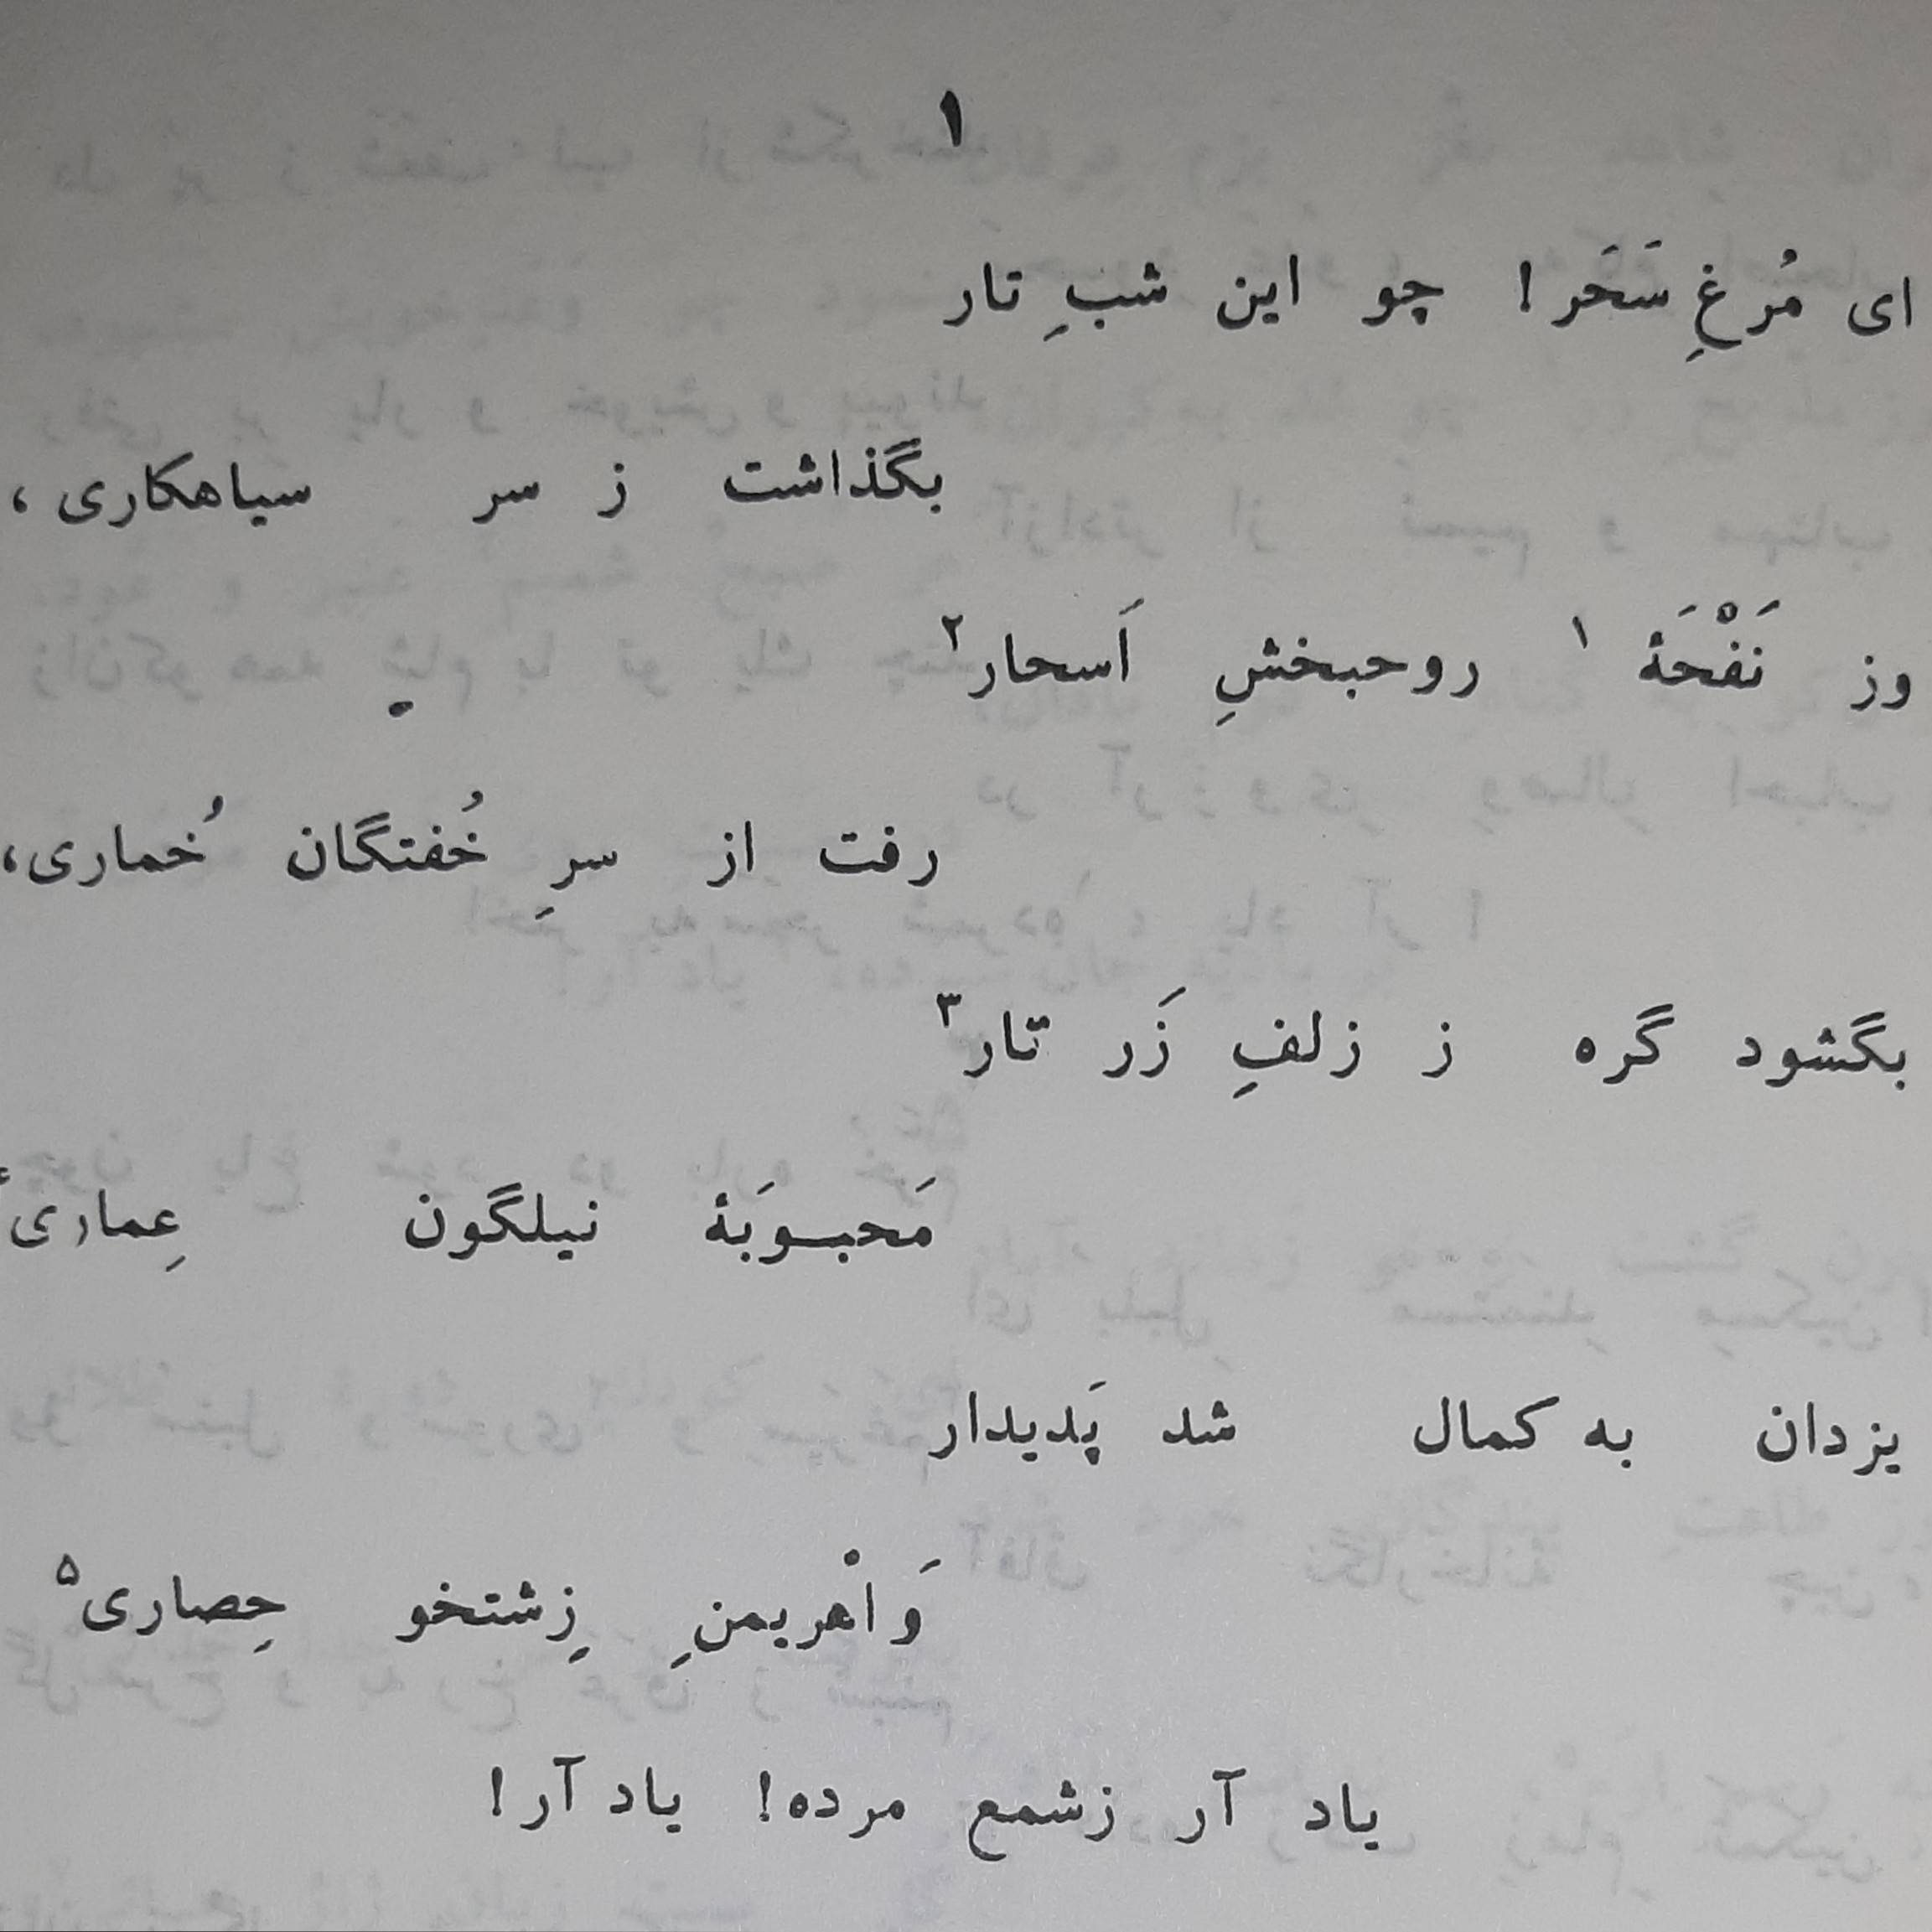 ۱
ای مُرغِ سَحَر! چو این شبِ تار
بگذاشت ز سر سیاهکاری،
وز نَفْحَهٔ ۱ روحبخشِ اَسحار۲
رفت از سرِ خُفتگان خُماری،
بگشود گره ز زلفِ زَر تار۳
مَحبوبَهٔ نیلگون عِماری۴
یزدان به کمال شد پَدیدار
وَ اهْریمنِ زِشتخو حِصاری۵
یاد آر ز شمع مرده! یاد آر!